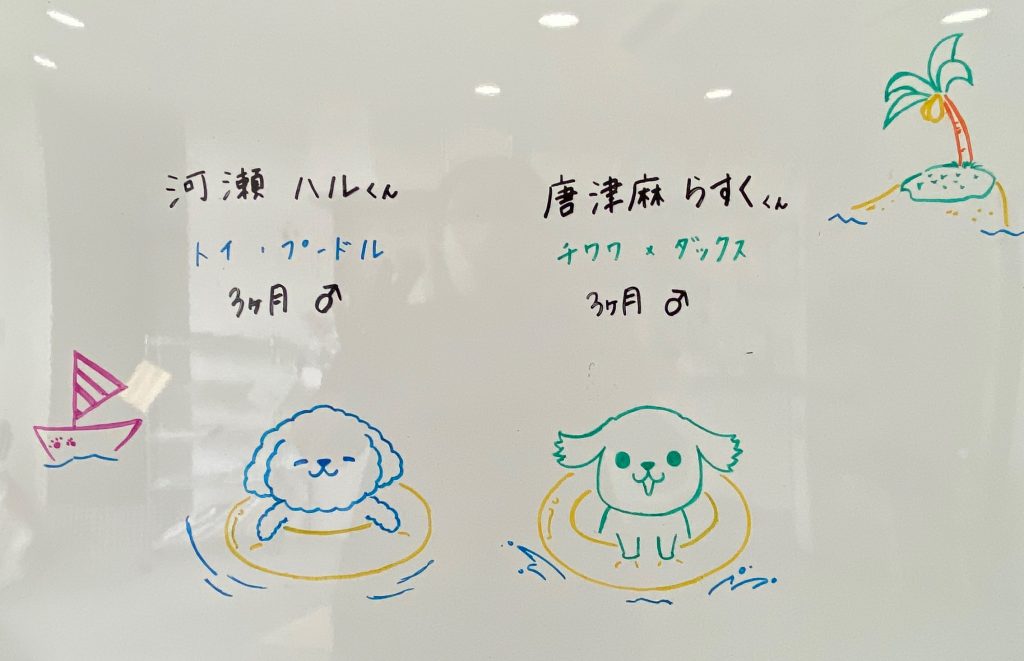 河瀬 ハルくん
トイ・プードル
3ヶ月 ♂
唐津麻 らすくくん
チワワ × ダックス
3ヶ月 ♂